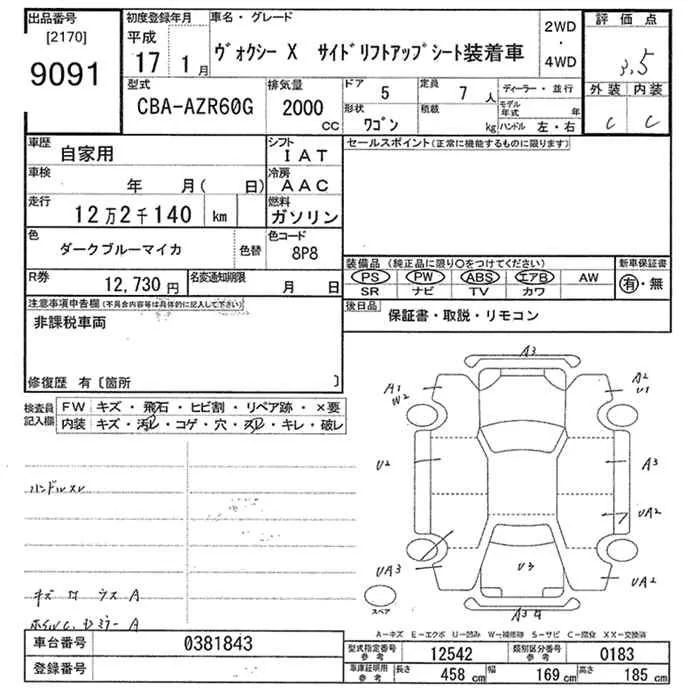 出品番号
[2170]
9091
初度登録年月
平成
17 1月
車名・グレード
ヴォクシー X サイドリフトアップシート装着車
2WD
・
4WD
評価点
3.5
外装 内装
C C
型式
CBA-AZR60G
排気量
2000
CC
ドア 5
定員 7 人
形状 ワゴン
積載 kg
ディーラー・並行
モデル年式 年
ハンドル 左・右
車歴
自家用
シフト
IAT
車検
年 月( 日)
冷房
AAC
走行
12万2千140 km
燃料
ガソリン
色
ダークブルーマイカ
色替
色コード
8P8
R券
12,730円
名変通知期限
月 日
セールスポイント(正常に機能するものに限ります)
装備品(純正品に限り○をつけてください)
PS PW ABS エアB AW
SR ナビ TV カワ
新車保証書
有・無
後日品
保証書・取説・リモコン
注意事項申告欄(不具合内容等は具体的に記入して下さい)
非課税車両
修復歴 有〔箇所 〕
検査員記入欄
FW キズ・飛石・ヒビ割・リペア跡・×要
内装 キズ・汚レ・コゲ・穴・スレ・キレ・破レ
ハンドルスレ
キズ
A
A
A3
A1
W2
A2
U1
U2
A3
UA2
UA3
U3
UA2
A3
スペア
A-キズ E-エクボ U-凹み W-補修跡 S-サビ C-腐食 XX-交換済
車台番号
0381843
登録番号
型式指定番号
参考
12542
類別区分番号
参考
0183
車庫証明用
参考
長さ 458 cm
幅 169 cm
高さ 185 cm